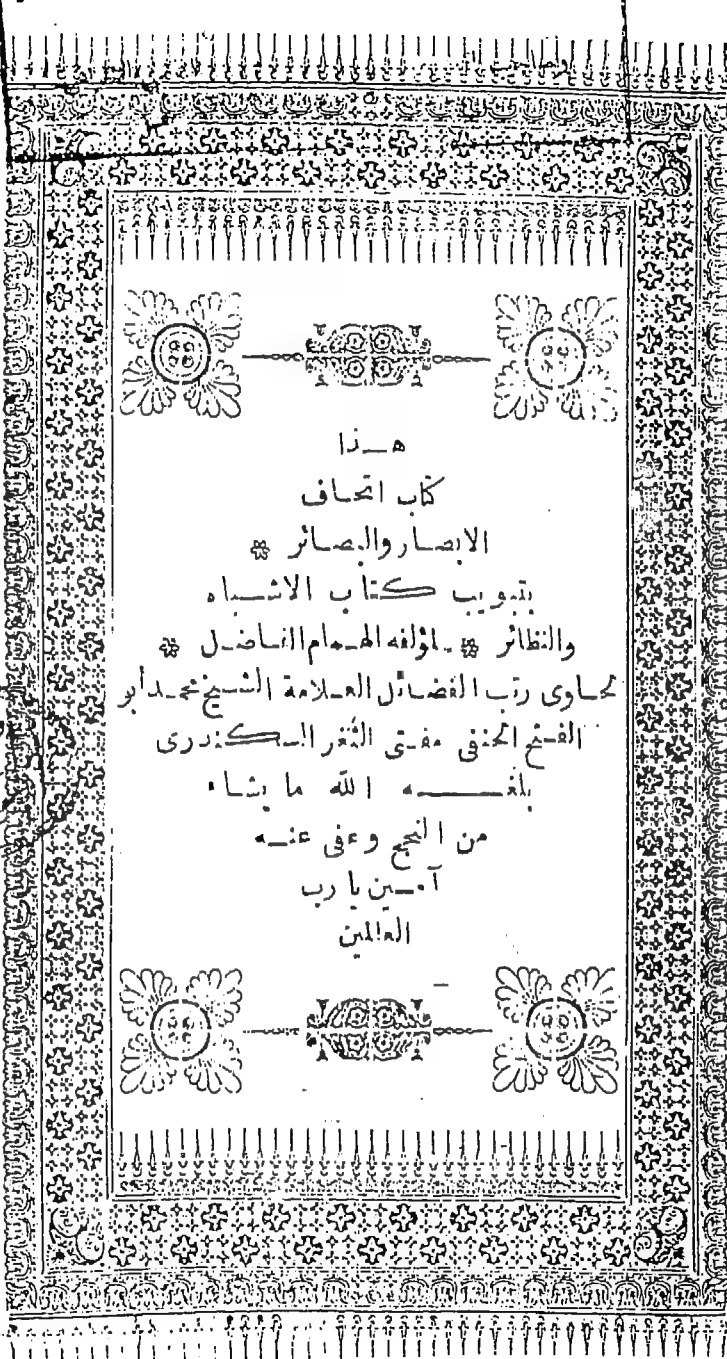 هـذا
كتاب اتحاف
الابصار والبصائر
بتبويب كتاب الاشباه
والنظائر لمؤلفه الهمام الفاضل
لحاوى رتب الفضائل العلامة الشيخ محمد أبو
الفتح الحنفى مفتى الثغر السكندرى
بلغه الله ما يشاء
من النجح وعفى عنه
آمين يا رب
العالمين